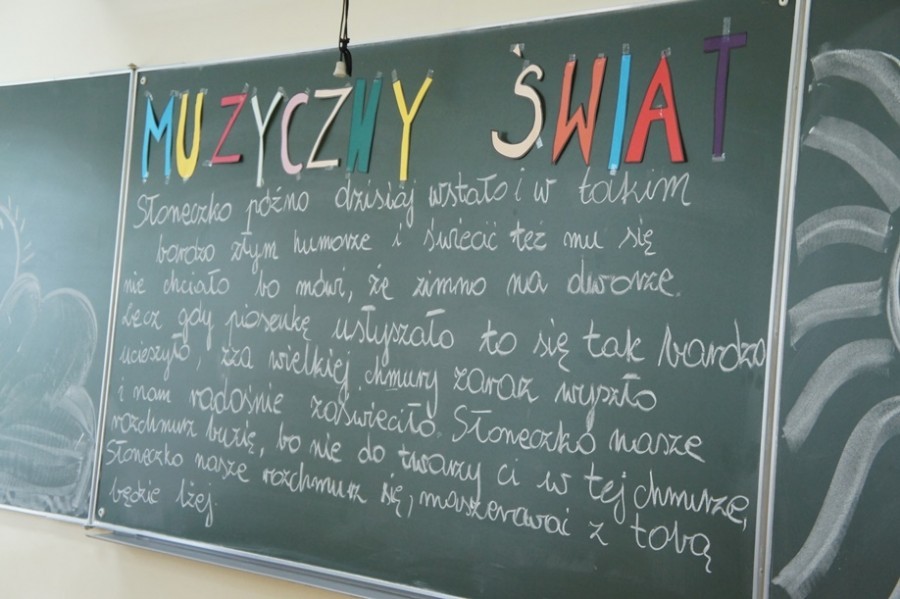 MUZYCZNY ŚWIAT
Słoneczko późno dzisiaj wstało i w takim
bardzo złym humorze i świecić też mu się
nie chciało bo mówi, że zimno na dworze.
Lecz gdy piosenkę usłyszało to się tak bardzo
ucieszyło, zza wielkiej chmury zaraz wyszło
i nam radośnie zaświeciło. Słoneczko nasze
rozchmurz buzię, bo nie do twarzy ci w tej chmurze,
Słoneczko nasze rozchmurz się, maszerować z tobą
będzie lżej.